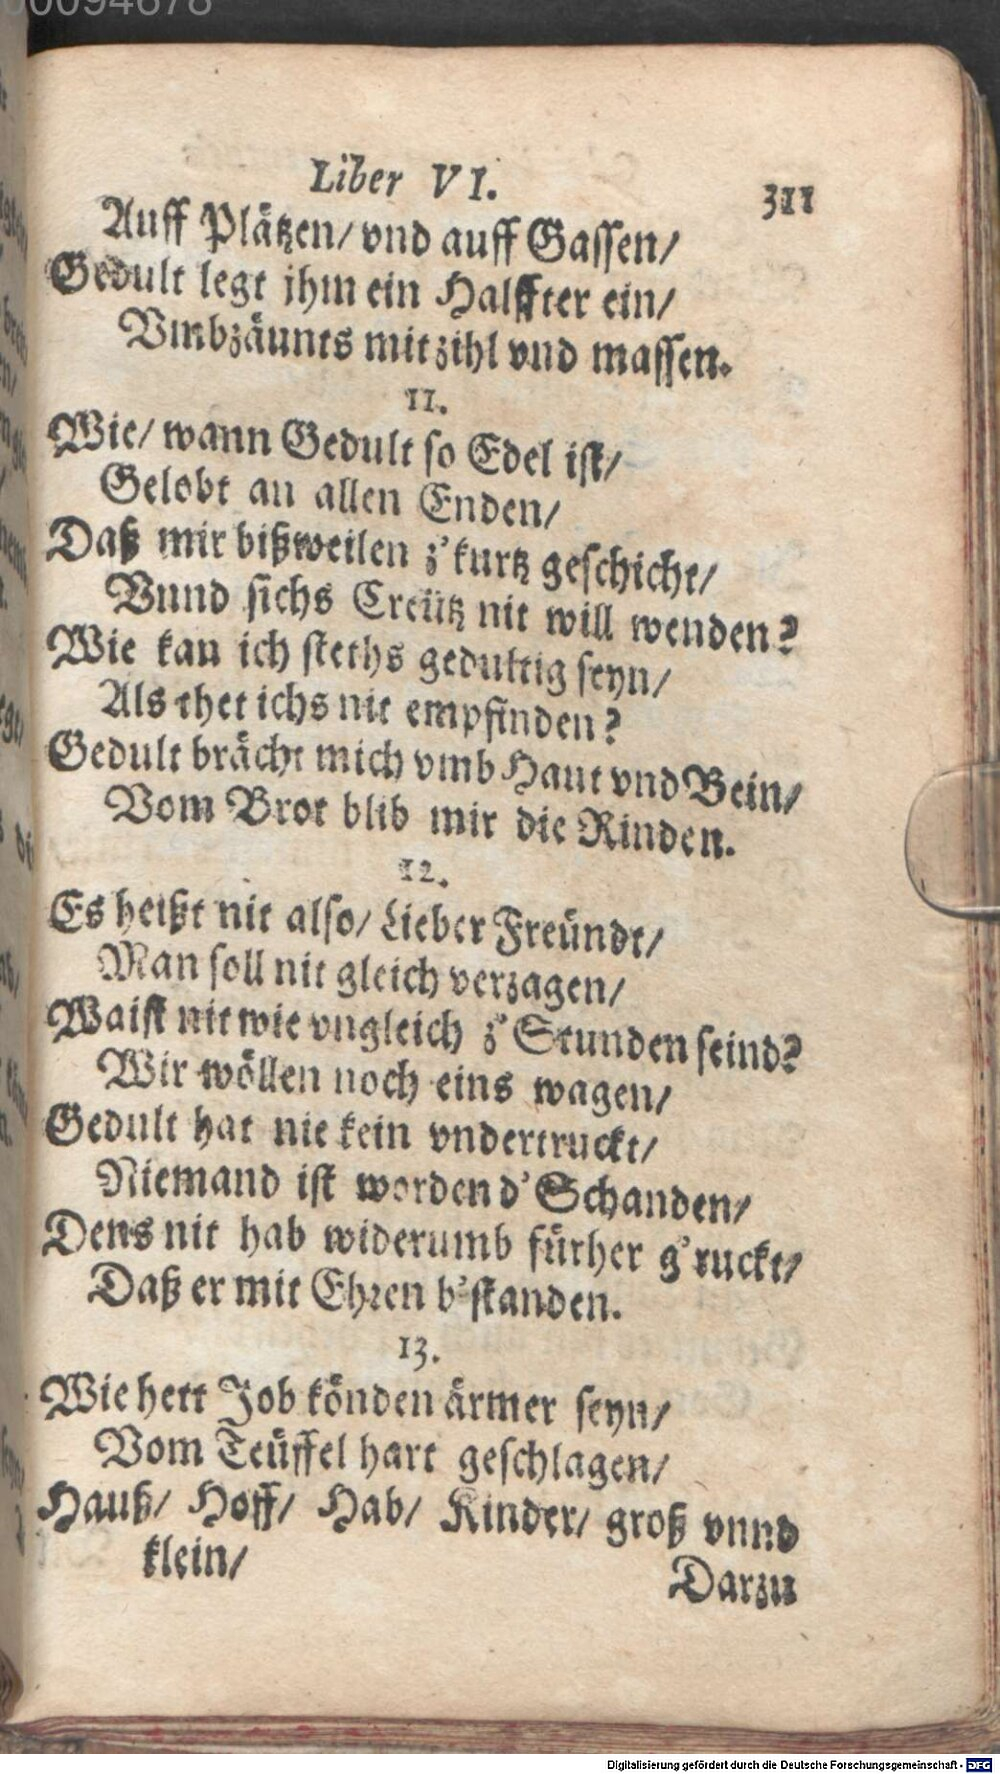 00094678
Liber VI. 311
Auff Plätzen/ vnd auff Gassen/
Gedult legt jhm ein Halffter ein/
Vmbzäunts mit zihl vnd massen.
11.
Wie/ wann Gedult so Edel ist/
Gelobt an allen Enden/
Daß mir bißweilen z'kurtz geschicht/
Vnnd sichs Creütz nit will wenden?
Wie kan ich steths gedultig seyn/
Als thet ichs nit empfinden?
Gedult brächt mich vmb Haut vnd Bein/
Vom Brot blib mir die Rinden.
12.
Es heißt nit also/ Lieber Freündt/
Man soll nit gleich verzagen/
Waist nit wie vngleich z'Stunden seind?
Wir wöllen noch eins wagen/
Gedult hat nie kein vndertruckt/
Niemand ist worden d'Schanden/
Dens nit hab widerumb fürher g'ruckt/
Daß er mit Ehren b'standen.
13.
Wie hett Job könden ärmer seyn/
Vom Teüffel hart geschlagen/
Hauß/ Hoff/ Hab/ Kinder/ groß vnnd
klein/
Darzu
Digitalisierung gefördert durch die Deutsche Forschungsgemeinschaft - DFG